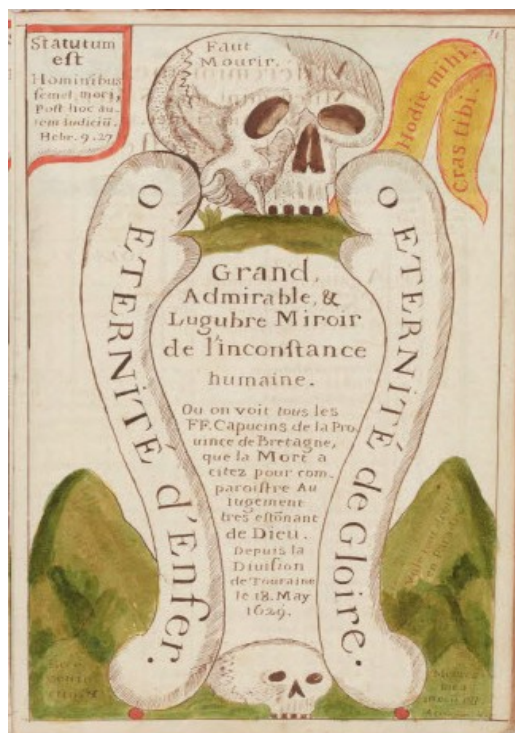 Statutum
est
Hominibus
semel mori,
Post hoc au,
tem Iudiciũ.
Hebr. 9. 27
Faut
Mourir.
Hodie mihi,
Cras tibi.
O ETERNITÉ d'Enfer.
O ETERNITÉ de Gloire.
Grand,
Admirable, &
Lugubre Miroir
de l'inconſtance
humaine.
Ou on voit tous les
FF. Capucins de la Pro
uince de Bretagne,
que la Mort a
citez pour com,
paroiſtre Au
Iugement
tres eſtõnant
de Dieu.
Depuis la
Diuiſion
de Touraine
le 18. May
1629.